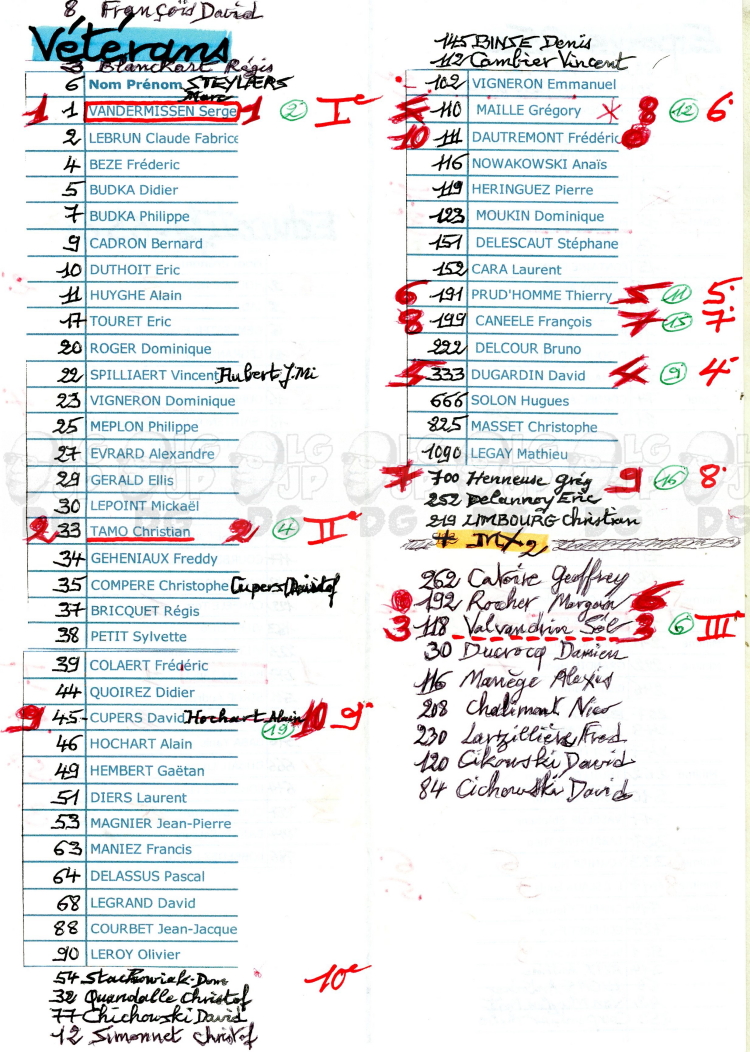 8 François David
Vétérans
3 Blanckart Régis
6 Nom Prénom STEYLÆRS
Marc
1 1 VANDERMISSEN Serge 1 2 Ie
2 LEBRUN Claude Fabrice
4 BEZE Fréderic
5 BUDKA Didier
7 BUDKA Philippe
9 CADRON Bernard
10 DUTHOIT Eric
11 HUYGHE Alain
17 TOURET Eric
20 ROGER Dominique
22 SPILLIAERT Vincent Hubert J.Mi
23 VIGNERON Dominique
25 MEPLON Philippe
27 EVRARD Alexandre
29 GERALD Ellis
30 LEPOINT Mickaël
2 33 TAMO Christian 2 4 IIe
34 GEHENIAUX Freddy
35 COMPERE Christophe Cupers
37 BRICQUET Régis
38 PETIT Sylvette
39 COLAERT Frédéric
44 QUOIREZ Didier
9 45 CUPERS David Hochart Alain 10 9e
19
46 HOCHART Alain
49 HEMBERT Gaëtan
51 DIERS Laurent
53 MAGNIER Jean-Pierre
63 MANIEZ Francis
64 DELASSUS Pascal
68 LEGRAND David
88 COURBET Jean-Jacque
90 LEROY Olivier
54 Stachowiak-Dom 10e
32 Quandalle Christof
77 Chichowski David
12 Simonnet Christof
145 BINSE Denis
112 Cambier Vincent
102 VIGNERON Emmanuel
110 MAILLE Grégory 8 12 6e
10 111 DAUTREMONT Frédéric
116 NOWAKOWSKI Anaïs
119 HERINGUEZ Pierre
123 MOUKIN Dominique
151 DELESCAUT Stéphane
152 CARA Laurent
6 191 PRUD'HOMME Thierry 5 11 5e
8 199 CANEELE François 7 15 7e
222 DELCOUR Bruno
5 333 DUGARDIN David 4 9 4e
666 SOLON Hugues
825 MASSET Christophe
1090 LEGAY Mathieu
7 700 Henneuse Grég 9 16 8e
252 Delannoy Eric
219 LIMBOURG Christian
MX2
262 Catoire Geoffrey
192 Rocher Morgan 6
3 118 Valvandrin Séb 3 6 IIIe
30 Ducrocq Damien
116 Manège Alexis
208 Chalimont Nico
230 Larzillière Fred
120 Cikowski David
84 Cichowski David
LG
JP
DG